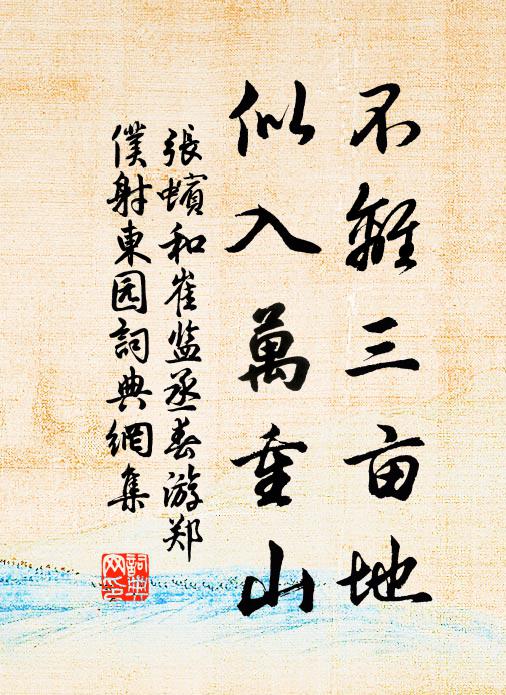 不離三亩地
似入萬重山
張蠙和崔监丞春游郑
僕射東园詞典網集
詞典
网印